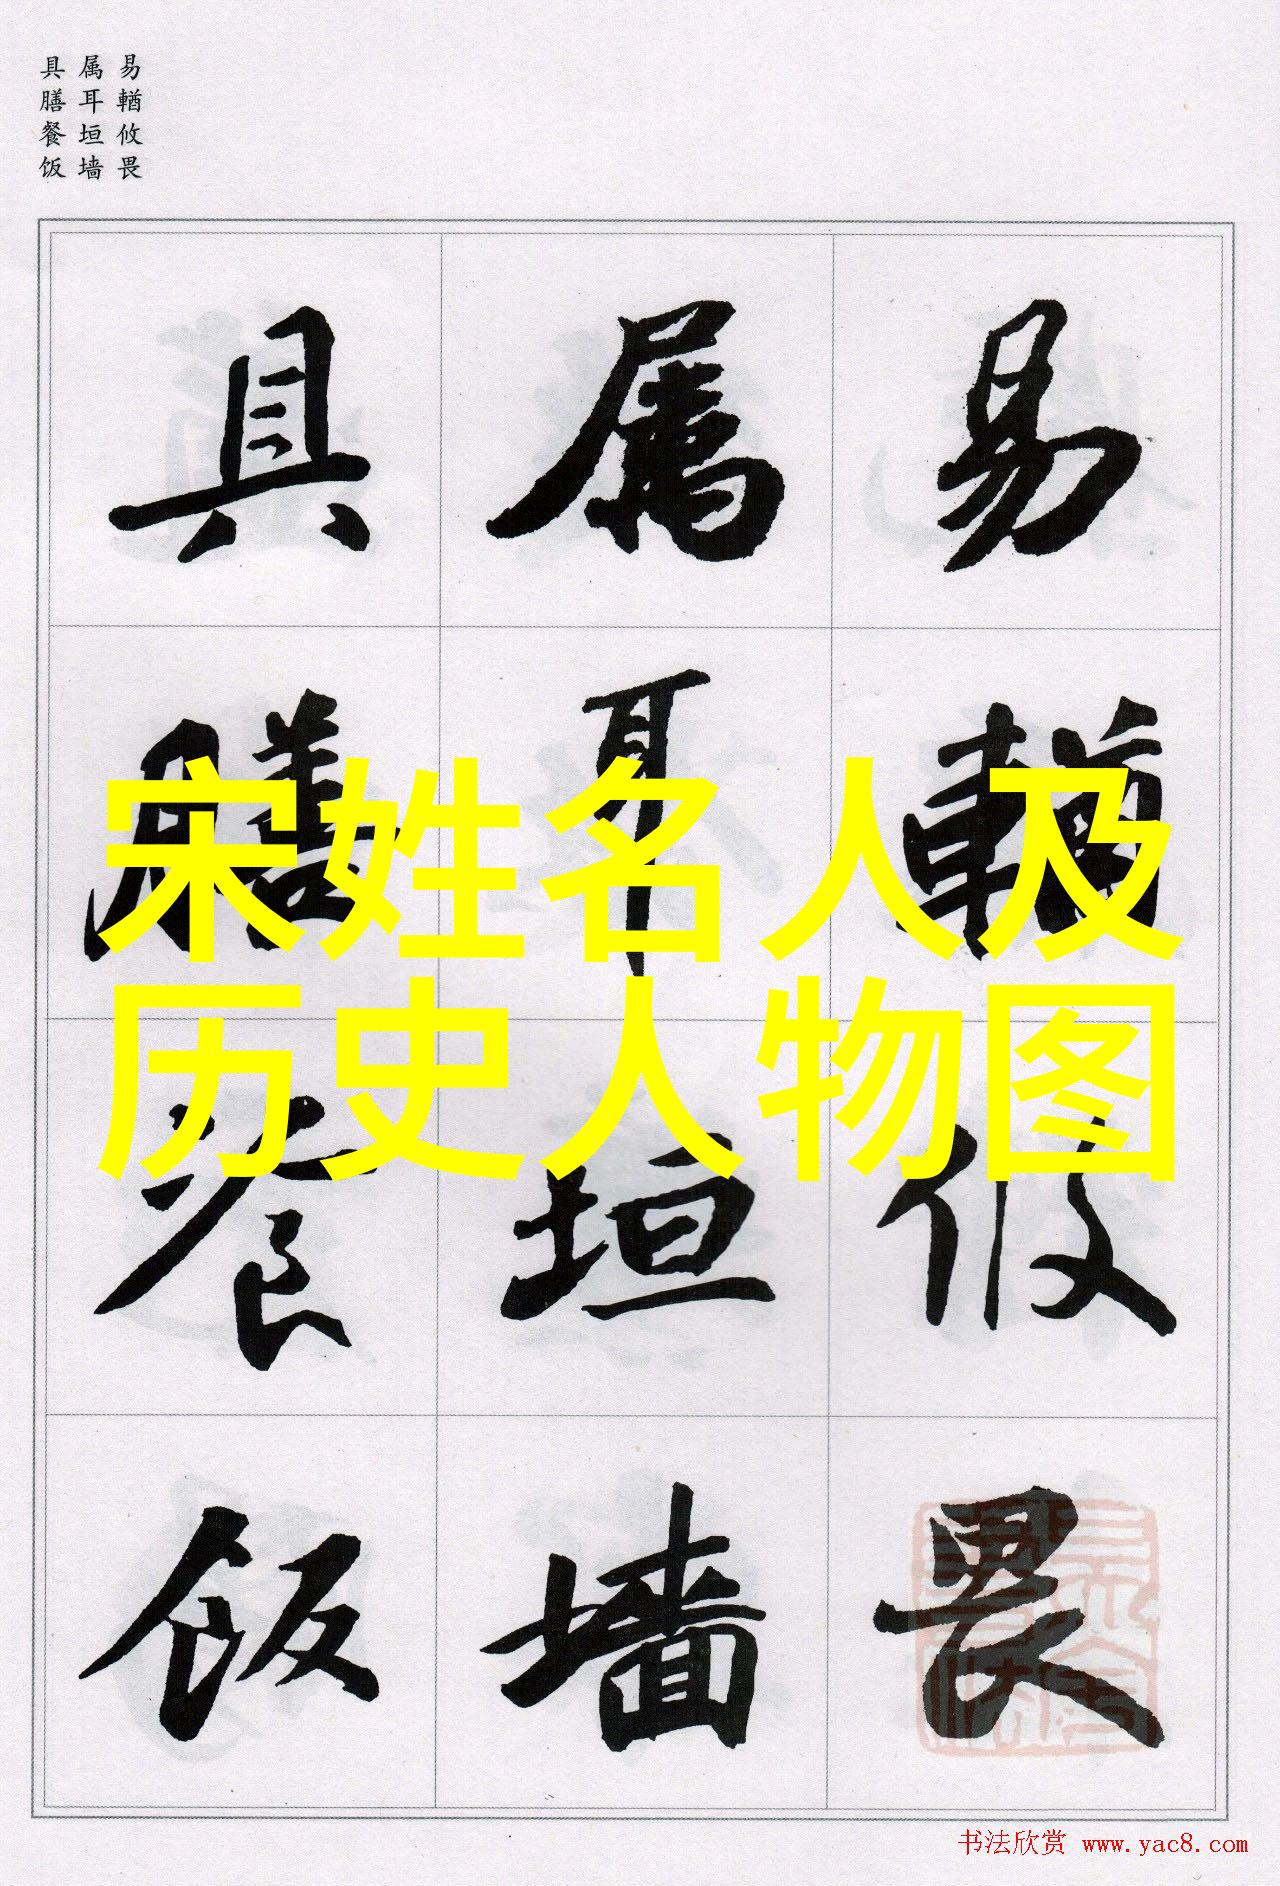 易輶攸畏
属耳垣墙
具膳餐饭
易輶攸畏
属耳垣墙
具膳餐饭
宋姓名人及
历史人物图
书法欣赏 www.yac8.com